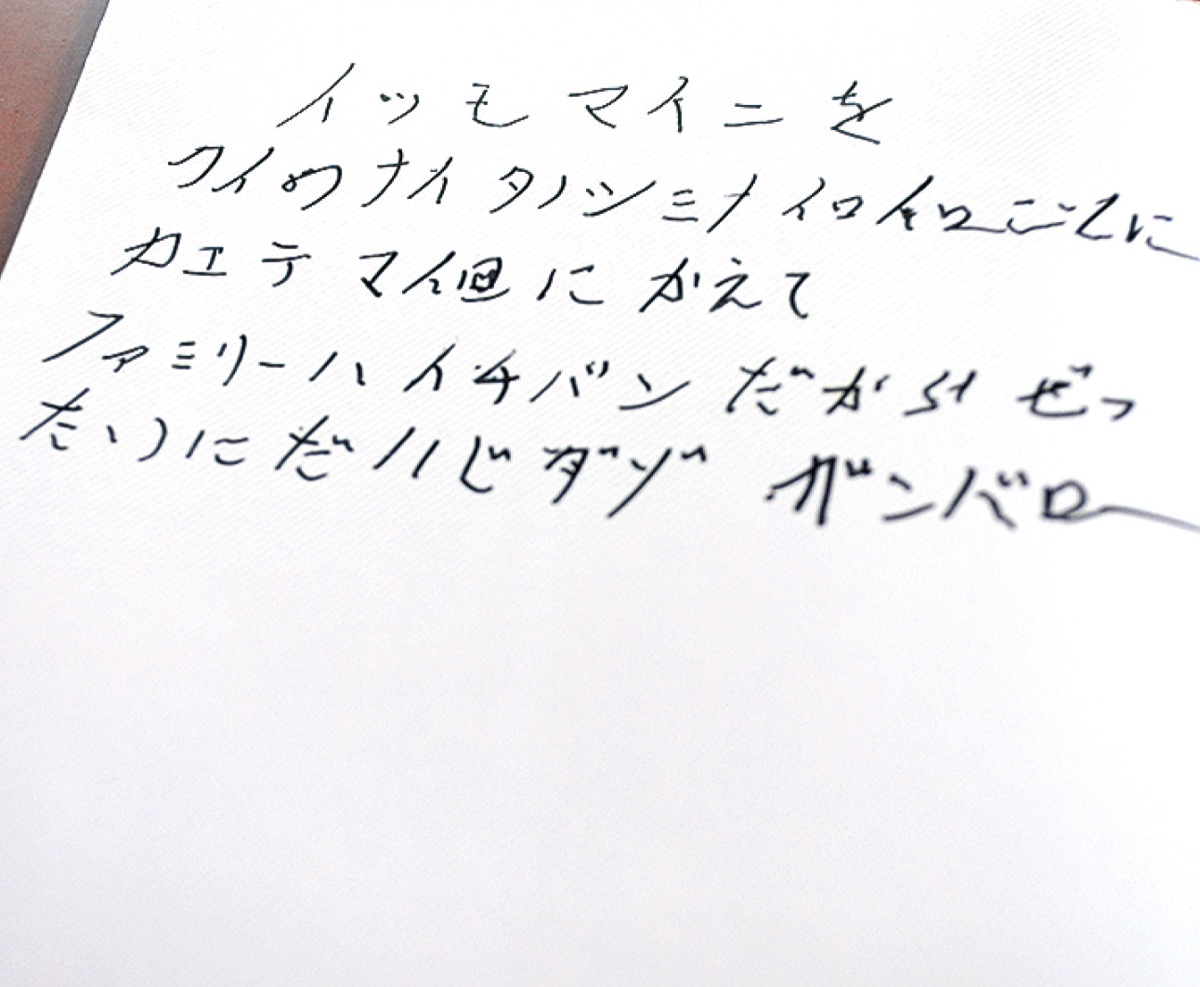 イツモマイニを
クイのナイタノシミナイロイロごとに
カエテマイ伹にかえて
ファミリーハイチバンだから ぜっ
たいにだハじダゾ ガンバロー